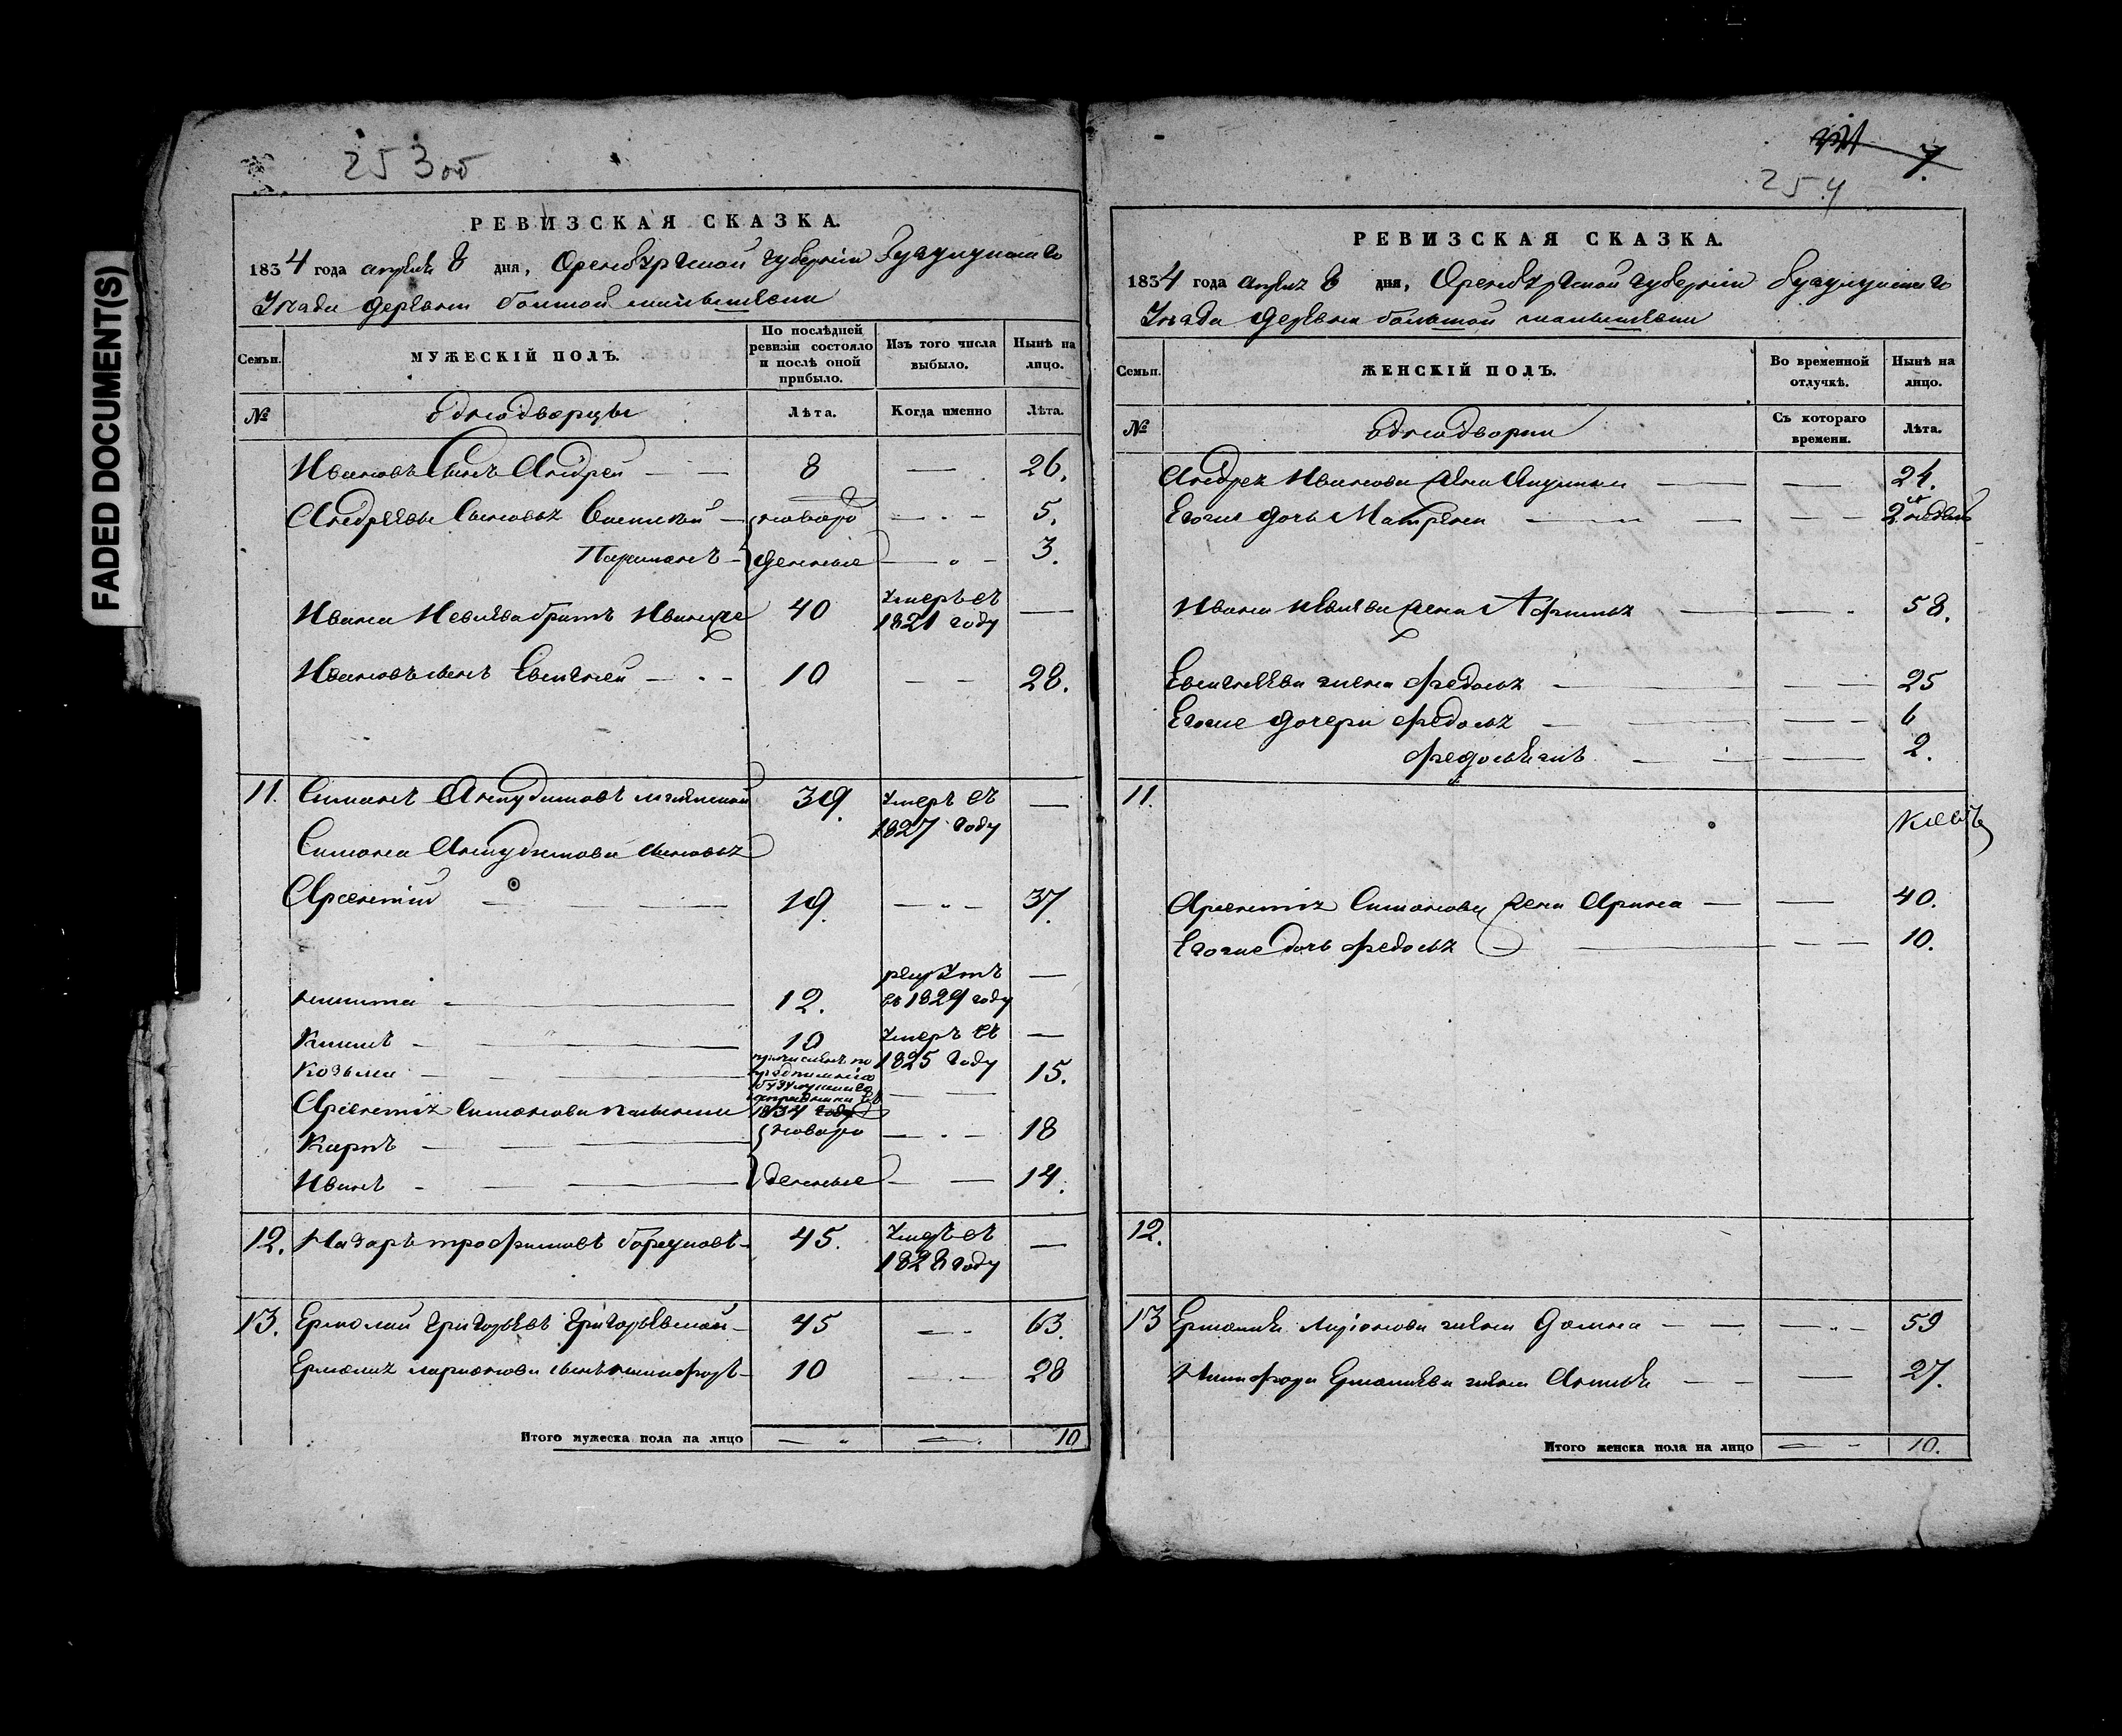 FADED DOCUMENT(S)
253об
РЕВИЗСКАЯ СКАЗКА.
1834 года апреля 8 дня, Оренбургской губернии Бугурусланскаго
Уезда деревни большой
Семьи.
МУЖЕСКІЙ ПОЛЪ.
По послѣдней ревизіи состояло и послѣ оной прибыло.
Изъ того числа выбыло.
Нынѣ на лицо.
№
Однодворцы
Лѣта.
Когда именно
Лѣта.
Ивановъ сынъ Андрей 8 26.
Андреевы сыновья Василий новоро 5.
Парамонъ денные 3.
Ивана братъ Иванже 40 умеръ въ 1821 году
Ивановъ сынъ Евтигней 10 28.
11. Симонъ Антудимовъ 39. умеръ въ 1827 году
Симона Антудимова сыновья
Арсентий 19. 37.
никита 12. рекрутъ въ 1829 году
Климъ 10 умеръ въ 1825 году
Козьма 15.
1834 году
Арсентія Симонова
Карпъ новоро 18
Иванъ денные 14.
12. Назаръ трофимовъ 45. умеръ въ 1828 году
13. Ермолай Григорьевъ 45 63.
Ермолая ларионова сынъ никифоръ 10 28
Итого мужеска пола на лицо 10
7.
254
РЕВИЗСКАЯ СКАЗКА.
1834 года апреля 8 дня, Оренбургской губерніи Бугурусланскаго
Уезда деревни большой
Семьи.
ЖЕНСКІЙ ПОЛЪ.
Во временной отлучкѣ.
Нынѣ на лицо.
№
Однодворки
Съ котораго времени.
Лѣта.
Андрея Иванова жена Акулина 24.
Егоже дочь Матрена 2 недель
Ивана жена Афимья 58.
Евтигнеева жена федосья 25
Егоже дочери федосья 6
2.
11.
Арсентия Симонова жена Арина 40.
Егоже дочь федосья 10.
12.
13 Ермолая Ларіонова жена Домна 59
Никифора Ермолаева жена 27.
Итого женска пола на лицо 10.